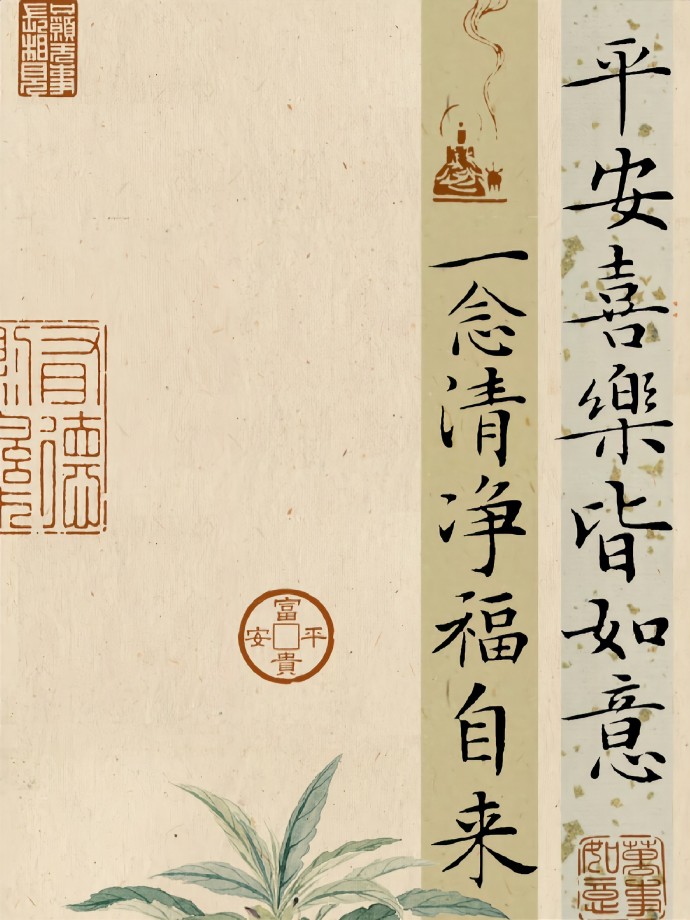 平安喜樂皆如意
一念清净福自来
萬事如意
富貴平安